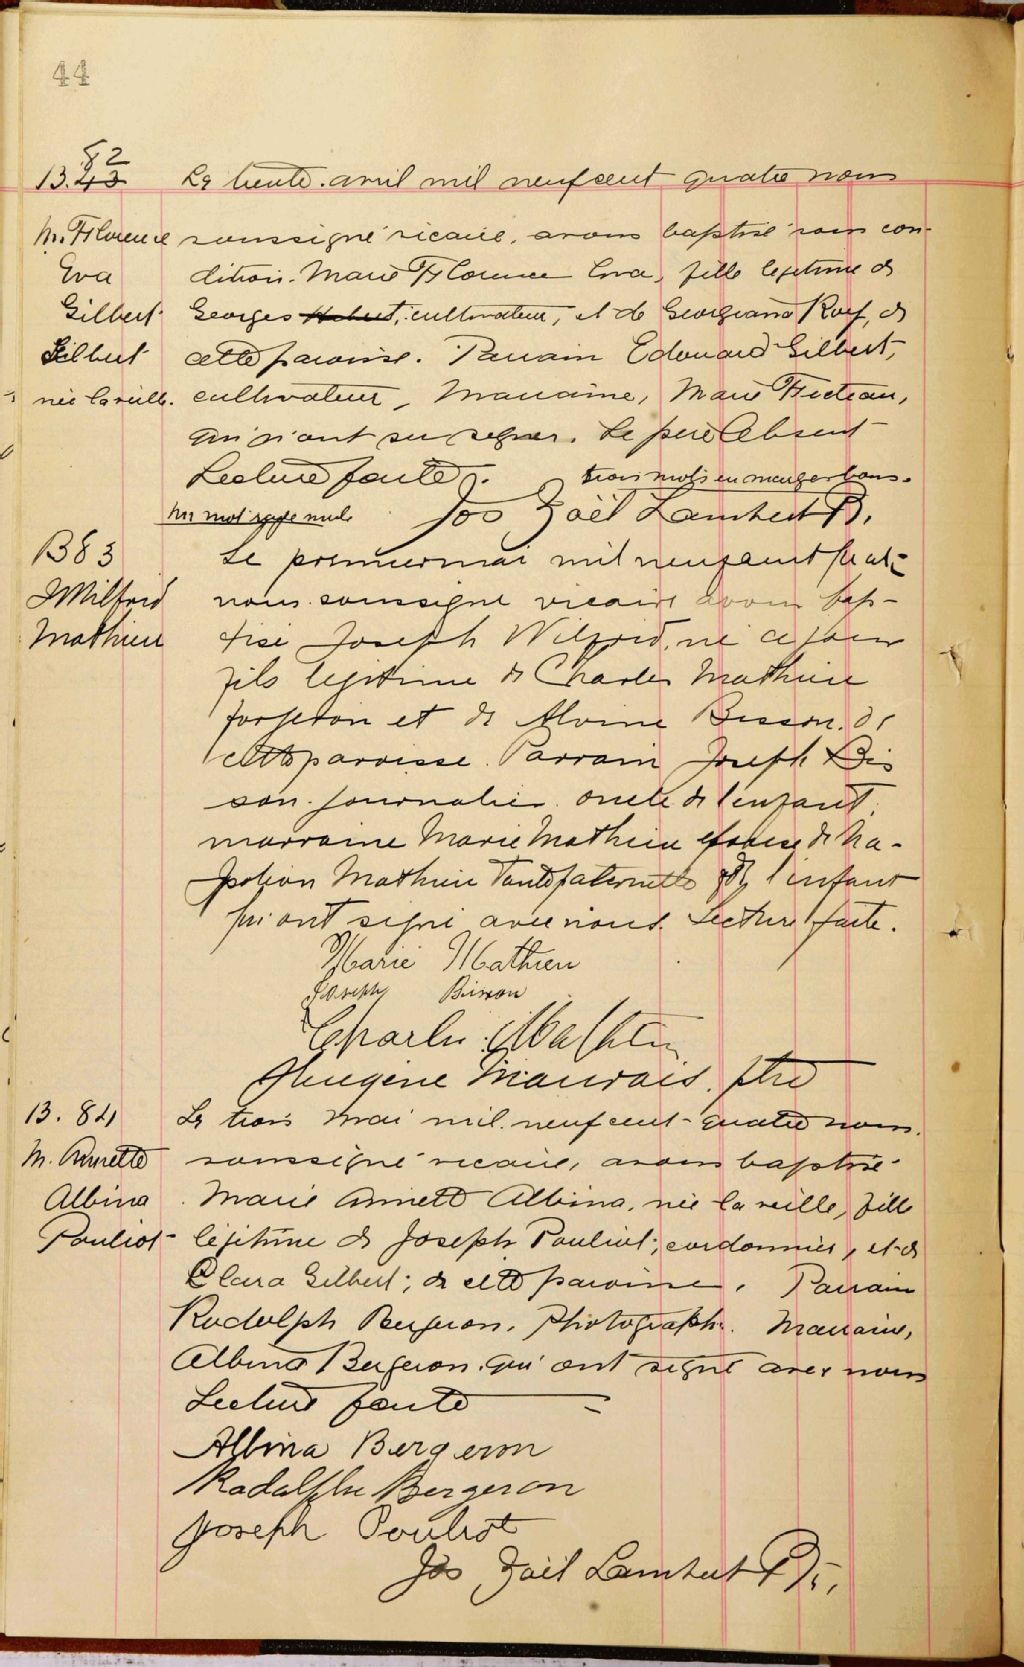 44
82
B. 43
Le trente avril mil neuf cent quatre nous
M. Florence soussigné vicaire, avons baptisé sous con-
Eva dition Marie Florence Eva, fille légitime de
Gilbert Georges Hebert, cultivateur, et de Georgiana Roy, de
Gilbert cette paroisse. Parrain Edouard Gilbert,
née la veille. cultivateur, Marraine, Marie Fecteau,
qui n'ont su signer. Le père Absent
Lecture faite. trois mots en marge bons.
un mot rayé nul. Jos Zoël Lambert P.
B 83 Le premier mai mil neuf cent quatre
J Wilfrid nous soussigné vicaire avons bap-
Mathieu tisé Joseph Wilfrid, né ce jour
fils légitime de Charles Mathieu
forgeron et de Alvine Bisson de
cette paroisse. Parrain Joseph Bis
son journalier oncle de l'enfant,
marraine Marie Mathieu épouse de Na-
poléon Mathieu Tante paternelle de l'enfant
qui ont signé avec nous. Lecture faite.
Marie Mathieu
Joseph Bisson
Charles Mathieu
Eugène Mauvais, ptre
B. 84 Le trois Mai mil neuf cent quatre nous
M. Annette soussigné vicaire, avons baptisé
Albina Marie Annette Albina, née la veille, fille
Pouliot légitime de Joseph Pouliot, cordonnier, et de
Clara Gilbert, de cette paroisse. Parrain
Rodolph Bergeron, Photographe. Marraine,
Albina Bergeron qui ont signé avec nous
Lecture faite
Albina Bergeron
Rodolphe Bergeron
Joseph Pouliot
Jos Zoël Lambert Ptr.